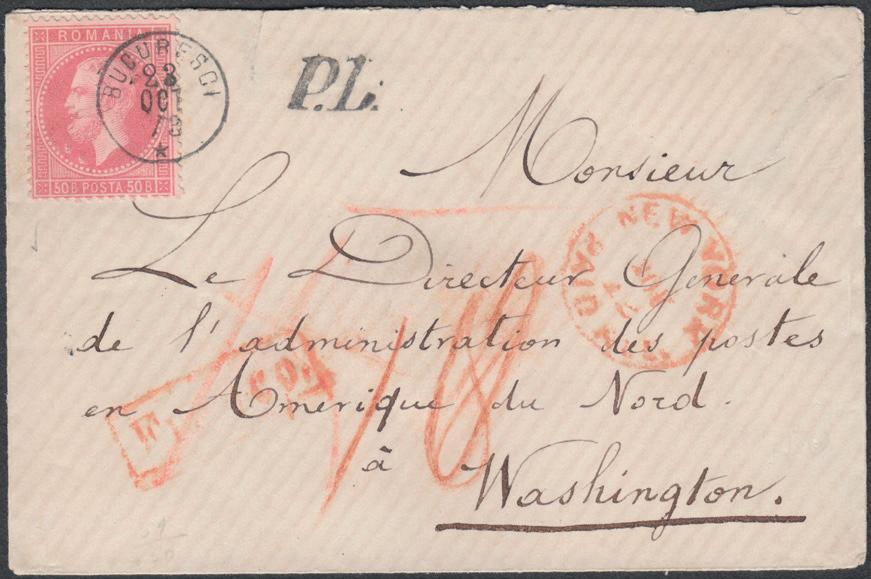 ROMANIA
50B POSTA 50B
BUCURESCI
23
OCT
P.L.
Monsieur
NEW YORK
PAID
Le Directeur Generale
de l'administration des postes
en Amerique du Nord.
à Washington.